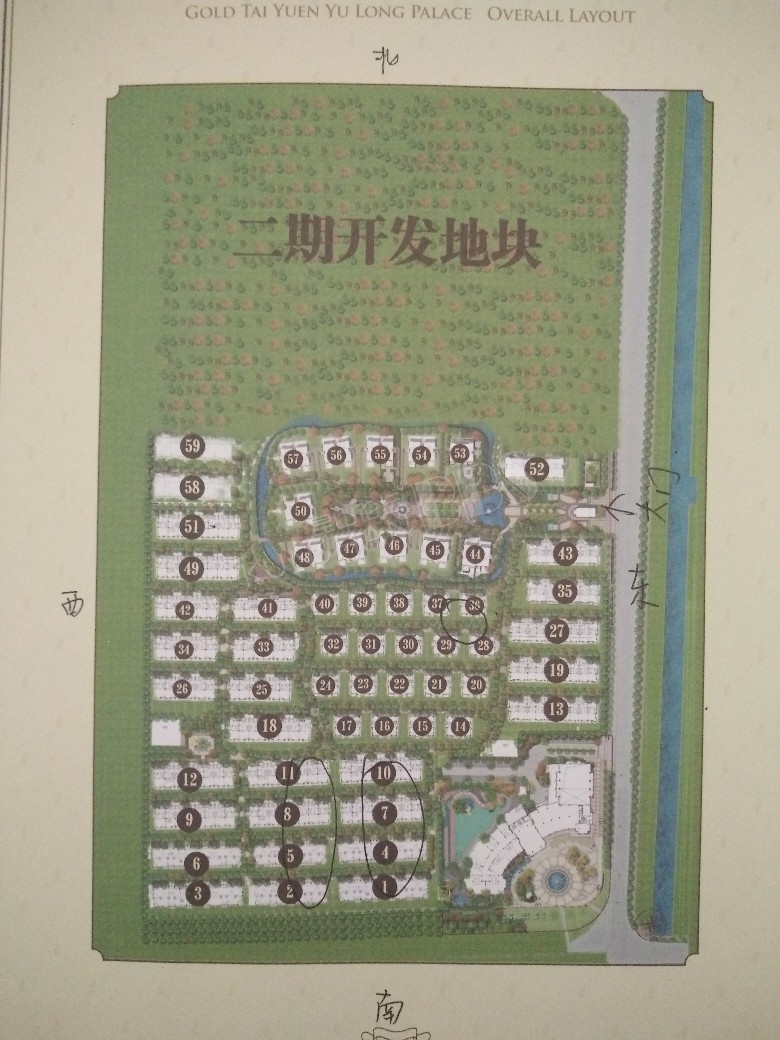 GOLD TAI YUEN YU LONG PALACE OVERALL LAYOUT
北
二期开发地块
59
57 56 55 54 53
52
58
50
51
大门
48 47 46 45 44
43
49
35
东
西
42 41 40 39 38 37 38
27
34 33 32 31 30 29 28
19
26 25 24 23 22 21 20
13
18 17 16 15 14
12 11 10
9 8 7
6 5 4
3 2 1
南